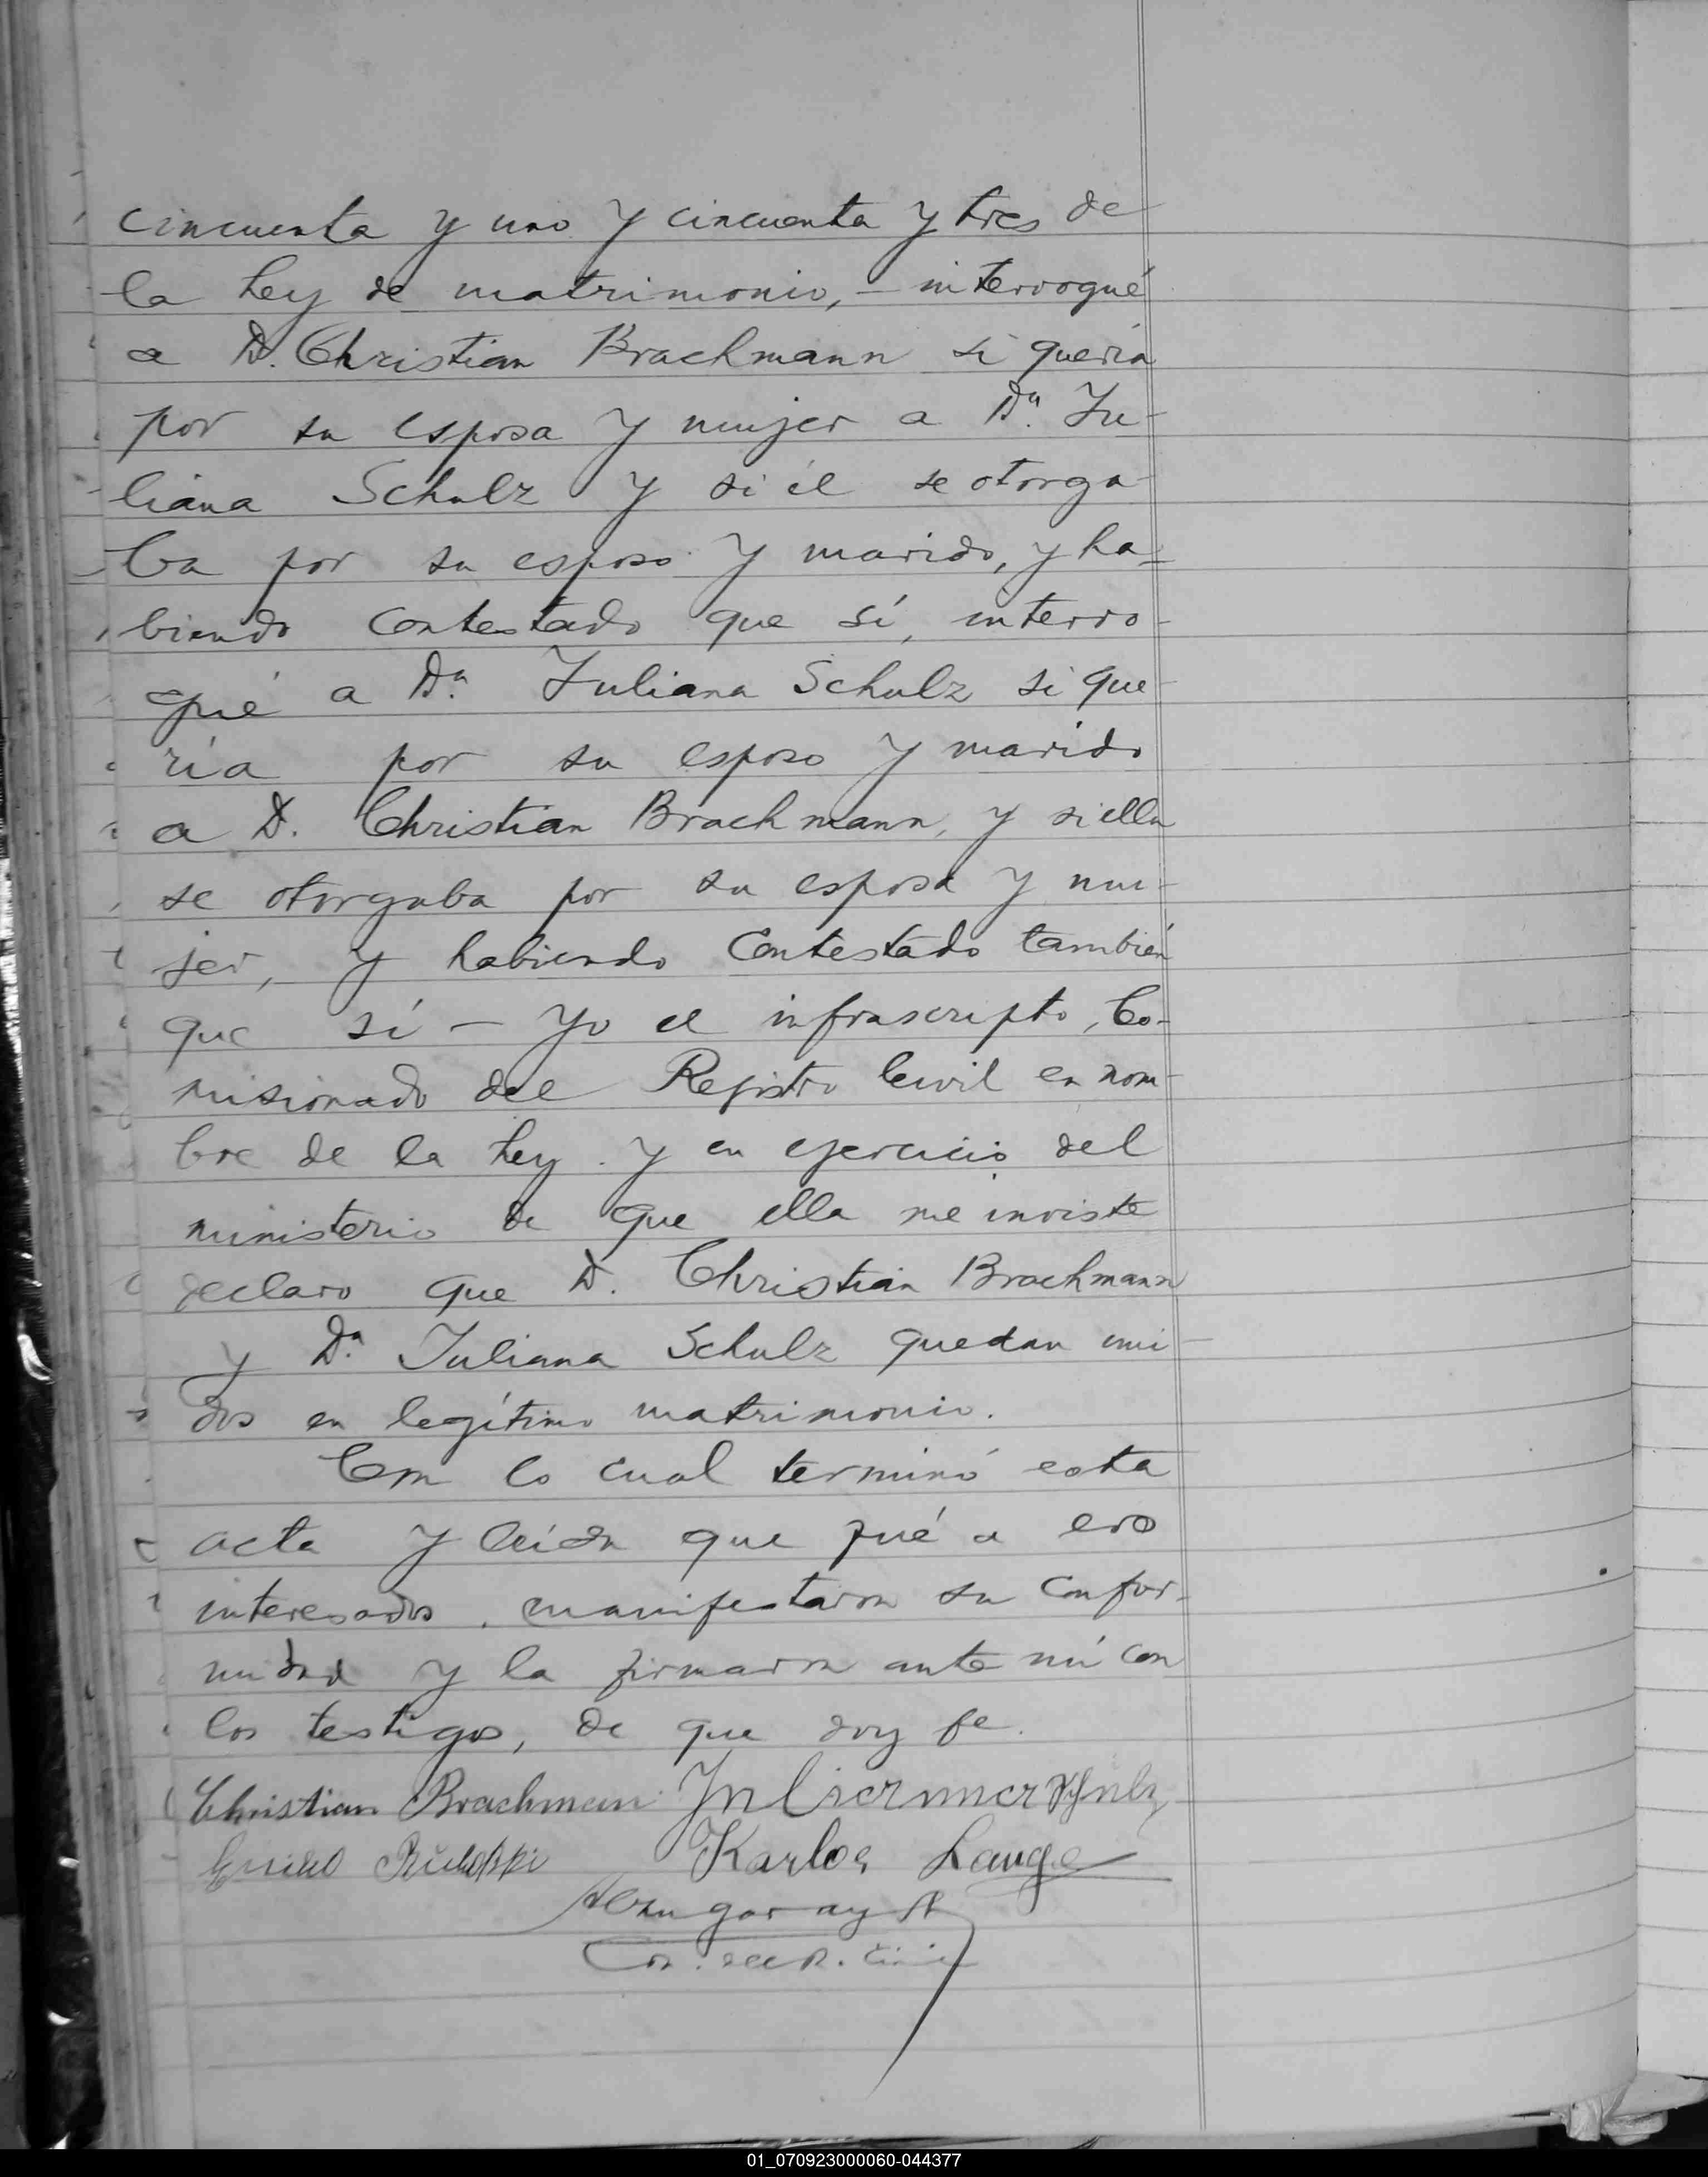 cincuenta y uno y cincuenta y tres de
la Ley de matrimonio, - interrogué
a D. Christian Brachmann si quería
por su esposa y mujer a Dª. Ju-
liana Schulz y si él se otorga-
ba por su esposo y marido, y ha-
biendo contestado que sí, interro-
gué a Dª. Juliana Schulz si que-
ría por su esposo y marido
a D. Christian Brachmann, y si ella
se otorgaba por su esposa y mu-
jer, y habiendo contestado también
que sí - Yo el infrascripto, Co-
misionado del Registro Civil en nom-
bre de la Ley y en ejercicio del
ministerio de que ella me inviste
declaro que D. Christian Brachmann
y Dª. Juliana Schulz quedan uni-
dos en legítimo matrimonio.
Con lo cual terminó esta
acta y leída que fué a los
interesados, manifestaron su confor-
midad y la firmaron ante mí con
los testigos, de que doy fe.
Christian Brachmann Julianna Schulz
Karlos Lange
Co. del R. Civil
01_070923000060-044377